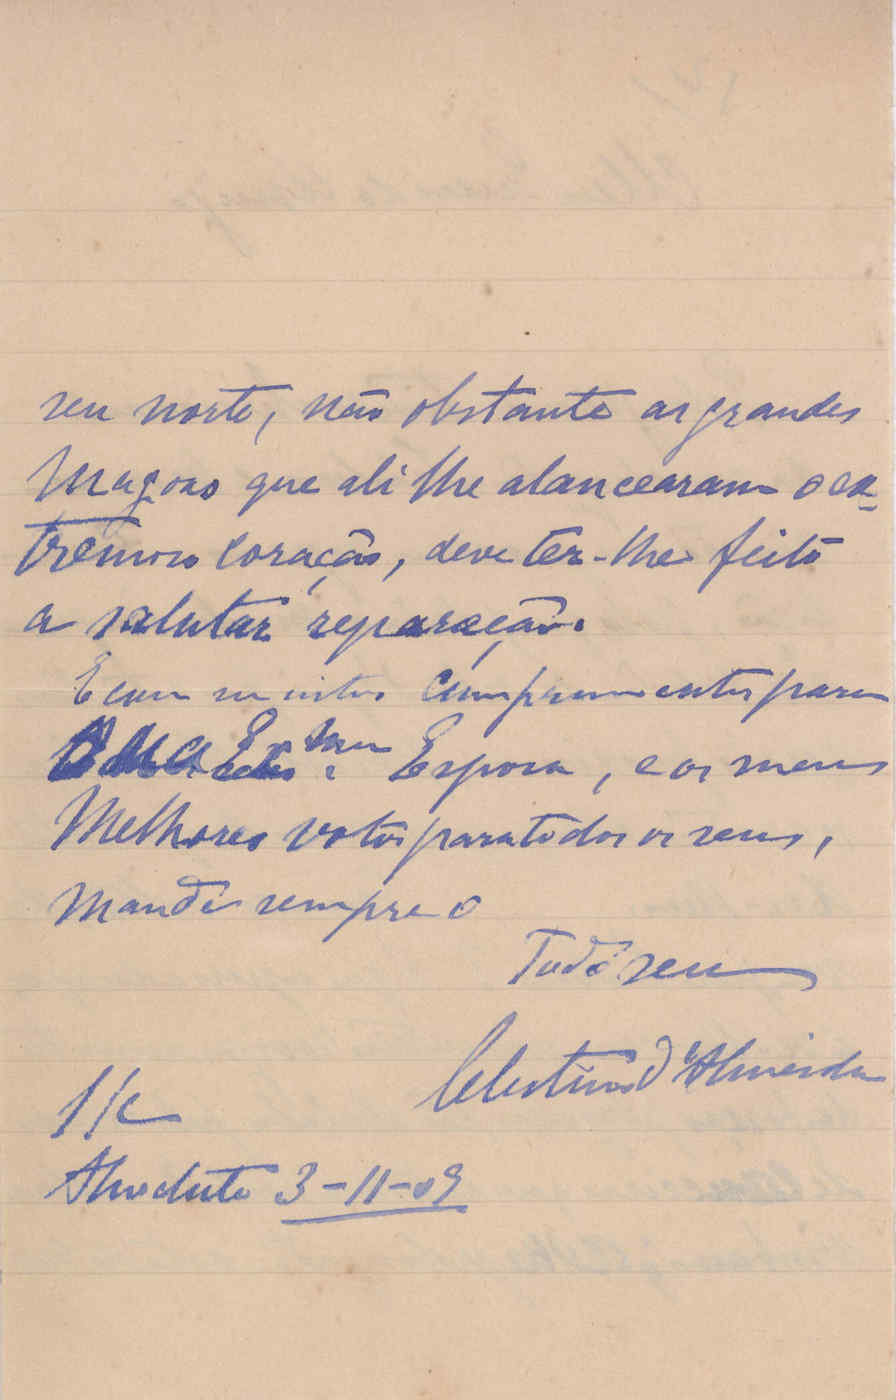 seu norte, não obstante as grandes
magoas que ali lhe alancearam o ex-
tremoso coração, deve ter-lhe feito
a salutar reparação.
E com muitos cumprimentos para
sua Ex.ma Esposa, e os meus
melhores votos para todos os seus,
mande sempre o
Todo seu
Celestino d'Almeida
S/c
3-11-09